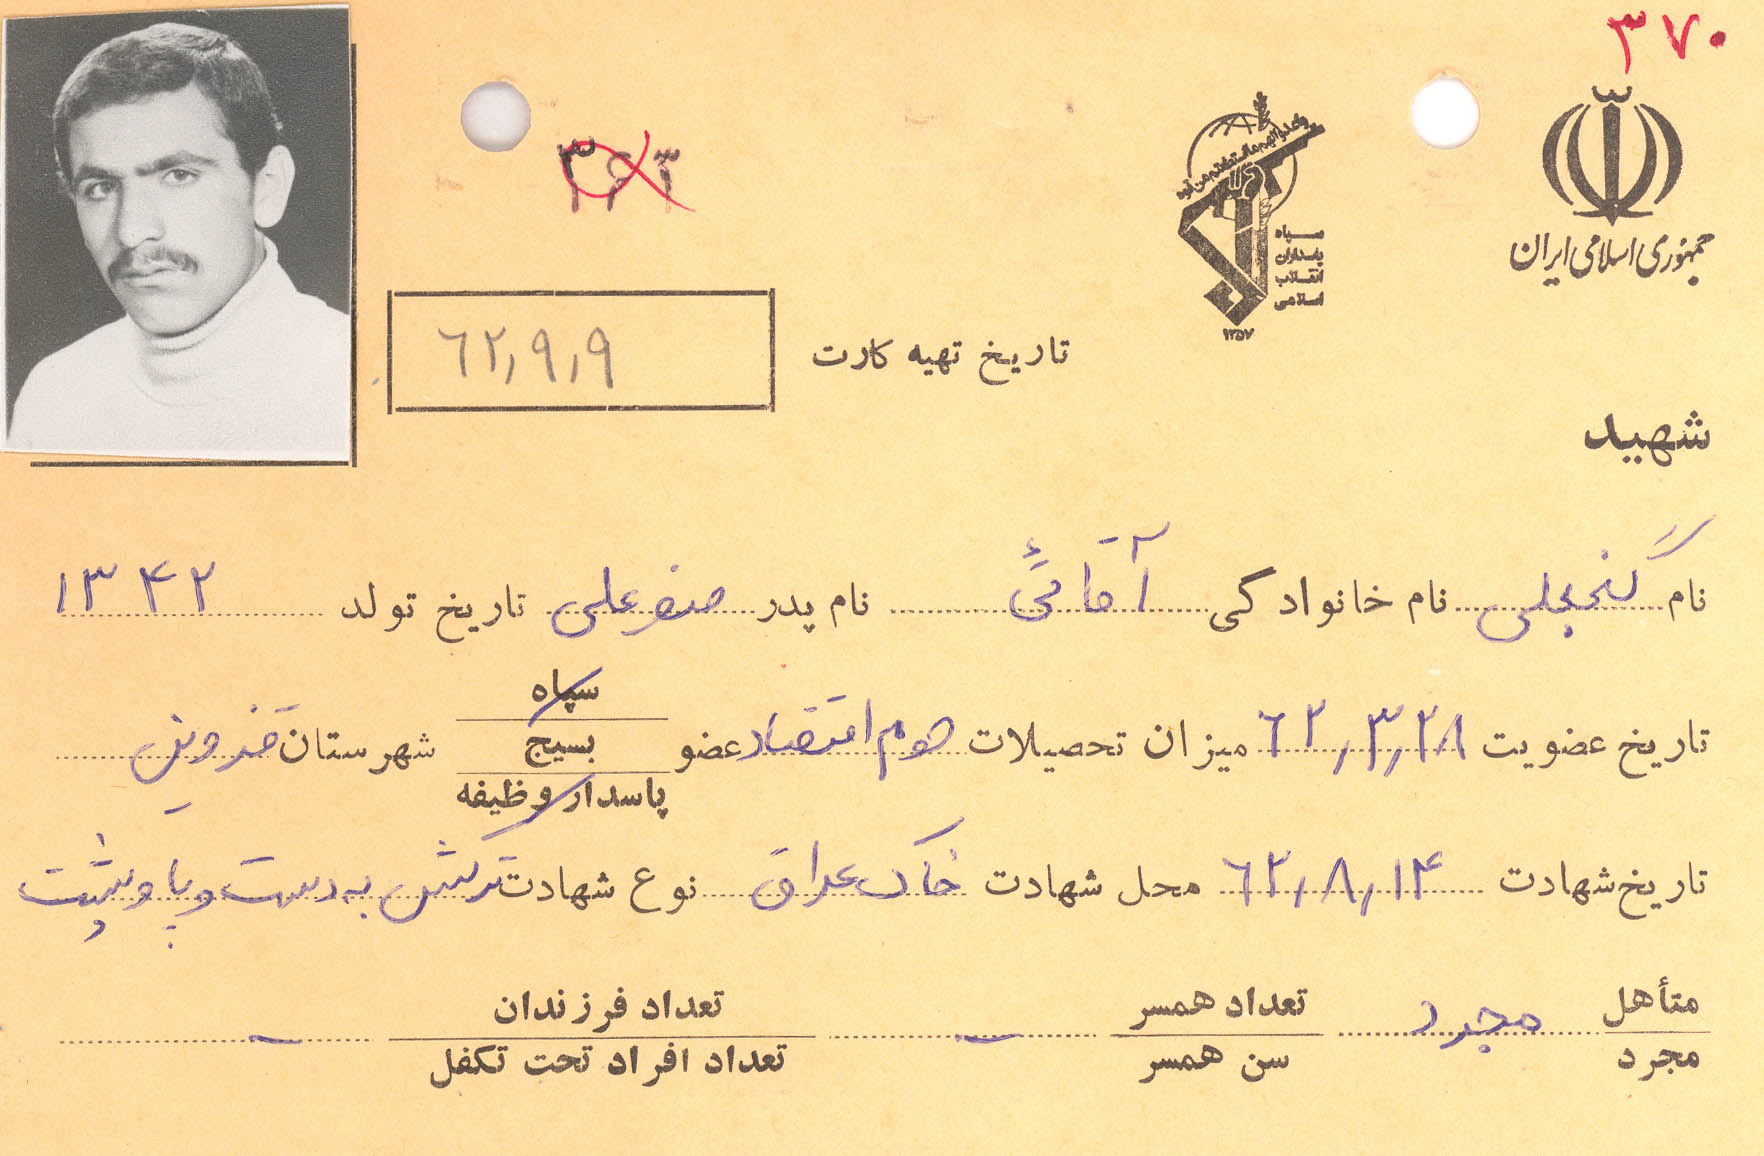 ۳۷۰
جمهوری اسلامی ایران
سپاه
پاسداران
انقلاب
اسلامی
۱۳۵۷
تاریخ تهیه کارت ۶۲٫۹٫۹
شهید
نام گنجعلی نام خانوادگی آقائی نام پدر صفرعلی تاریخ تولد ۱۳۴۲
تاریخ عضویت ۶۲٫۳٫۲۸ میزان تحصیلات دوم اقتصاد عضو سپاه بسیج پاسدار وظیفه شهرستان قزوین
تاریخ شهادت ۶۲٫۸٫۱۴ محل شهادت خاک عراق نوع شهادت ترکش به دست و پا و پشت
متأهل مجرد مجرد تعداد همسر
سن همسر
تعداد فرزندان
تعداد افراد تحت تکفل